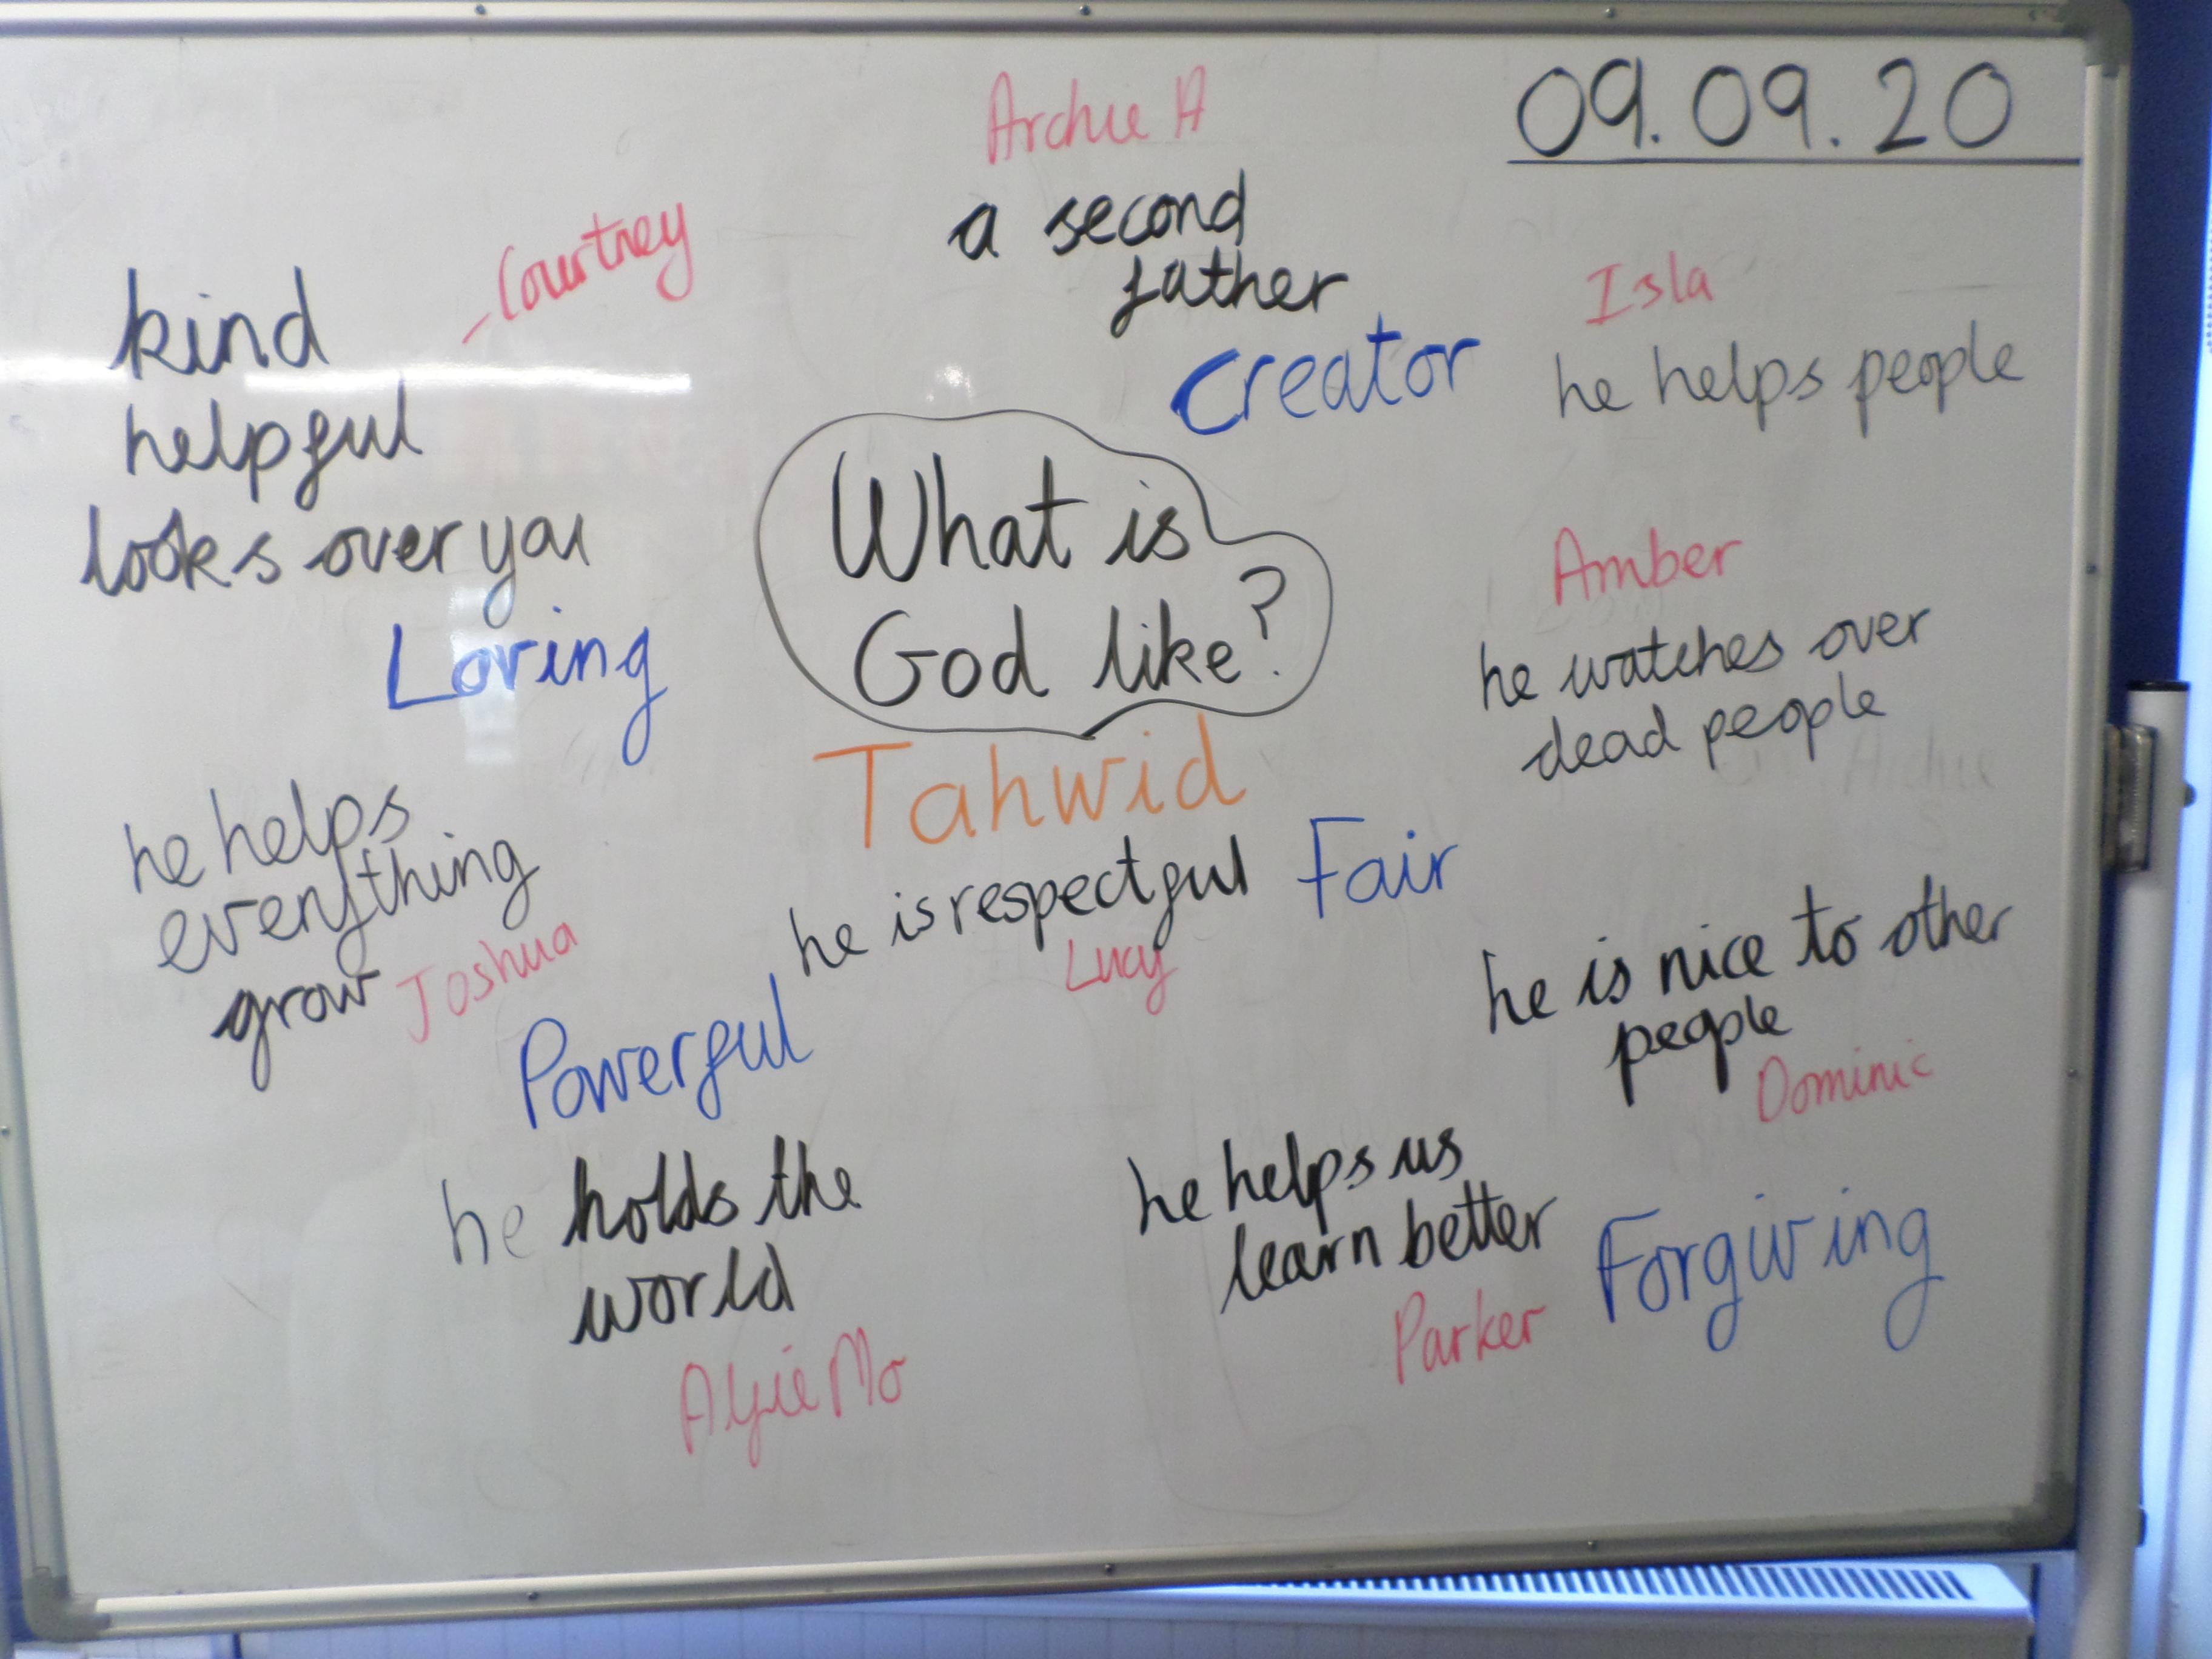 09.09.20
Archie A
a second
father
Courtney
kind
helpful
looks over you
Creator
Isla
he helps people
What is
God like?
Loving
Amber
he watches over
dead people
Tahwid
he helps
everything
grow
Joshua
he is respectful
Lucy
Fair
he is nice to other
people
Dominic
Powerful
he holds the
world
Alfie Mo
he helps us
learn better
Parker
Forgiving